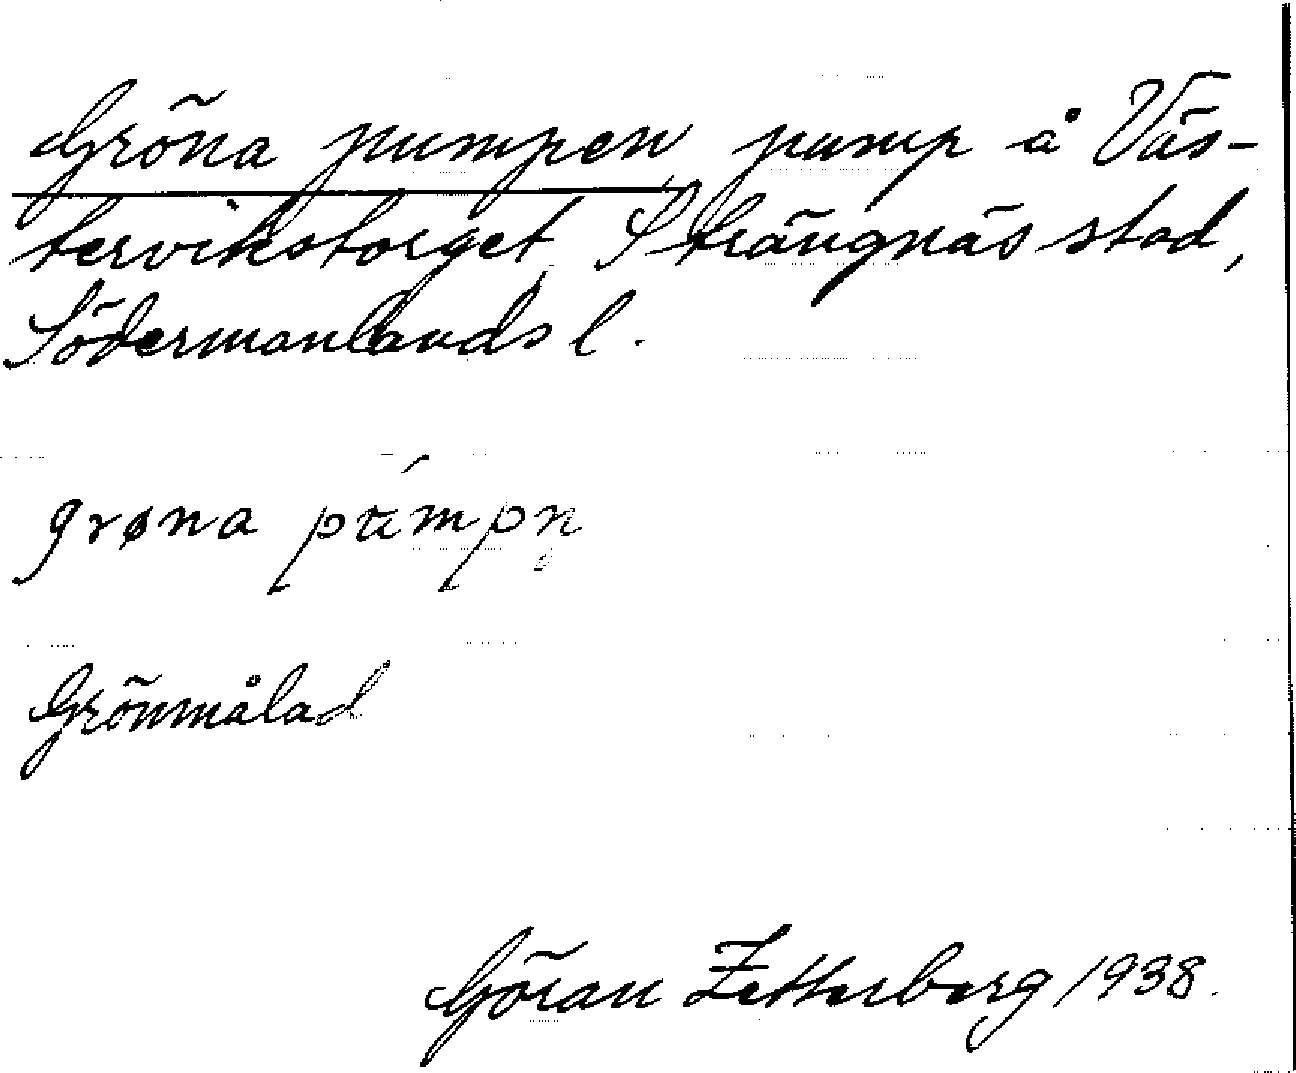 Gröna pumpen pump å Väs-
tervikstorget, Strängnäs stad,
Södermanlands l.
grøna púmpn̥
Grönmålad
Göran Zetterberg 1938.